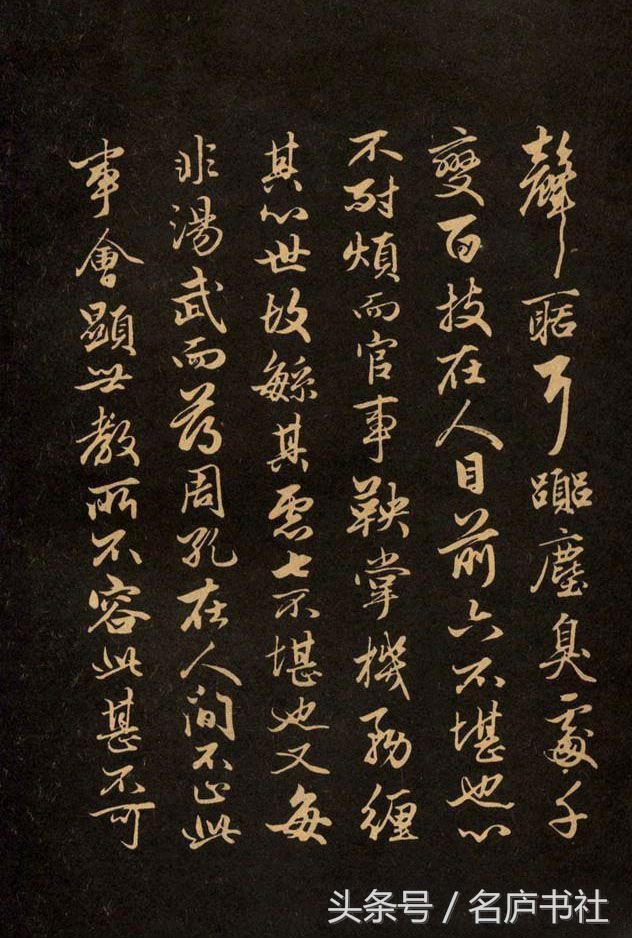 聲聒耳囂塵臭處千
變百技在人目前六不堪也心
不耐煩而官事鞅掌機務纏
其心世故緐其慮七不堪也又每
非湯武而薄周孔在人間不止此
事會顯世教所不容此甚不可
头条号 / 名庐书社